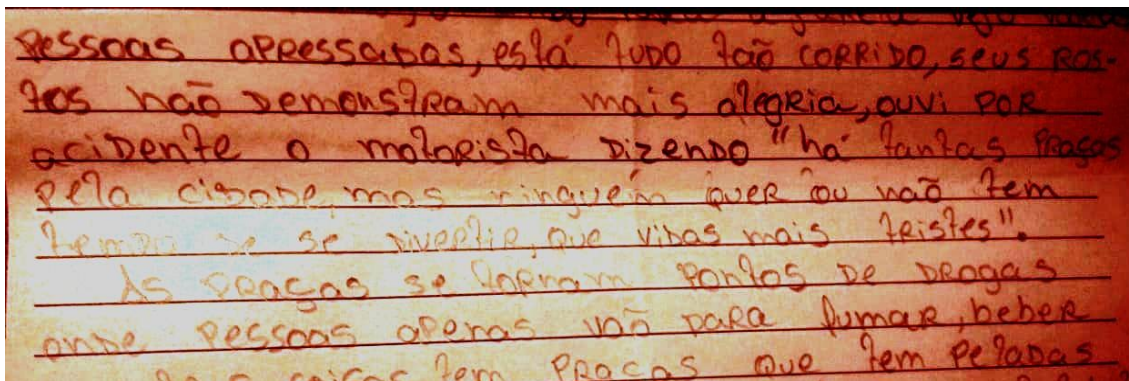 vejo
pessoas apressadas, está tudo tão corrido, seus ros-
tos não demonstram mais alegria, ouvi por
acidente o motorista dizendo "há tantas praças
pela cidade, mas ninguém quer ou não tem
tempo de se divertir, que vidas mais tristes".
As praças se tornam pontos de drogas
onde pessoas apenas vão para fumar, beber
coisas tem praças que tem peladas